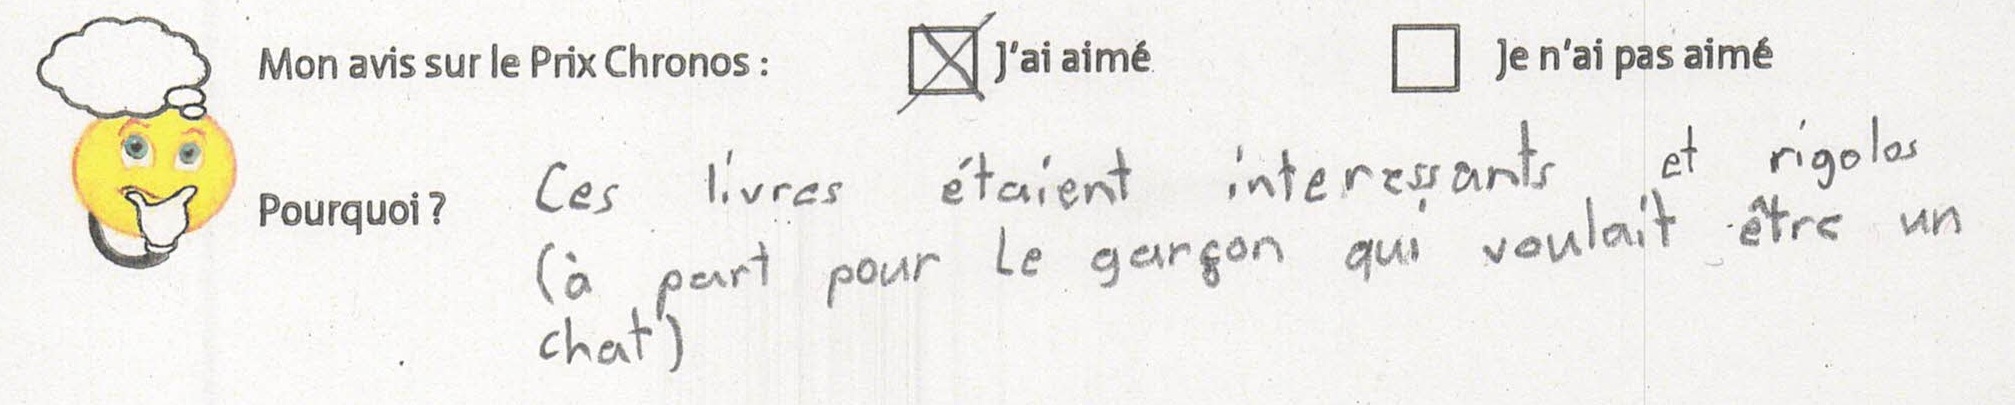 Mon avis sur le Prix Chronos : J'ai aimé Je n'ai pas aimé
Pourquoi ? Ces livres étaient interessants et rigolos
(à part pour le garçon qui voulait être un
chat)